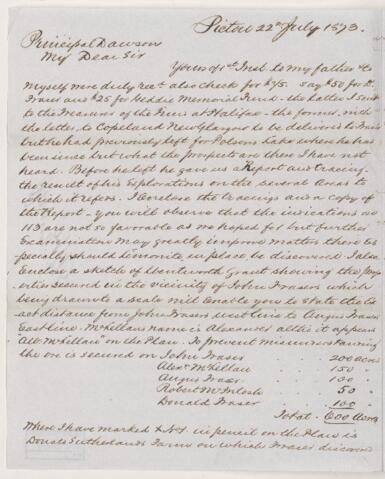 Pictou 22nd July 1873.
Principal Dawson
My Dear Sir
Yours of 1st Inst. to my father &
myself were duly recd also check for $75. say $50 for D.
Fraser and $25 for Geddie Memorial Fund. the latter I sent
to the Treasurer of the Fund at Halifax. the former, with
the letter, to Copeland New Glasgow to be delivered to Fraser
but he had previously left for Polsons Lake where he has
been since but what the prospects are there I have not
heard. Before he left he gave us a Report and tracing,
the result of his Explorations on the several areas to
which it refers. I enclose the tracings and a copy of
the Report. you will observe that the indications on
113 are not so favorable as we hoped for but further
Examination may greatly improve matters there Es
pecially should Limonite in place, be discovered. I also
Enclose a sketch of Wentworth Grant showing the prop
erties secured in the vicinity of John Frasers which
being drawn to a scale will Enable you to state the Ex
act distance from John Frasers west line to Angus Frasers
East line. McLellans name is Alexander altho it appears
"All McLellan" on the Plan. To prevent misunderstanding
the ore is secured on John Fraser 200 acres
Alexr McLellan 150 "
Angus Fraser 100 "
Robert McIntosh 50 "
Donald Fraser 100 "
Total 600 Acres
Where I have marked in pencil on the Plan is
Donald Sutherlands Farm on which Fraser discovered